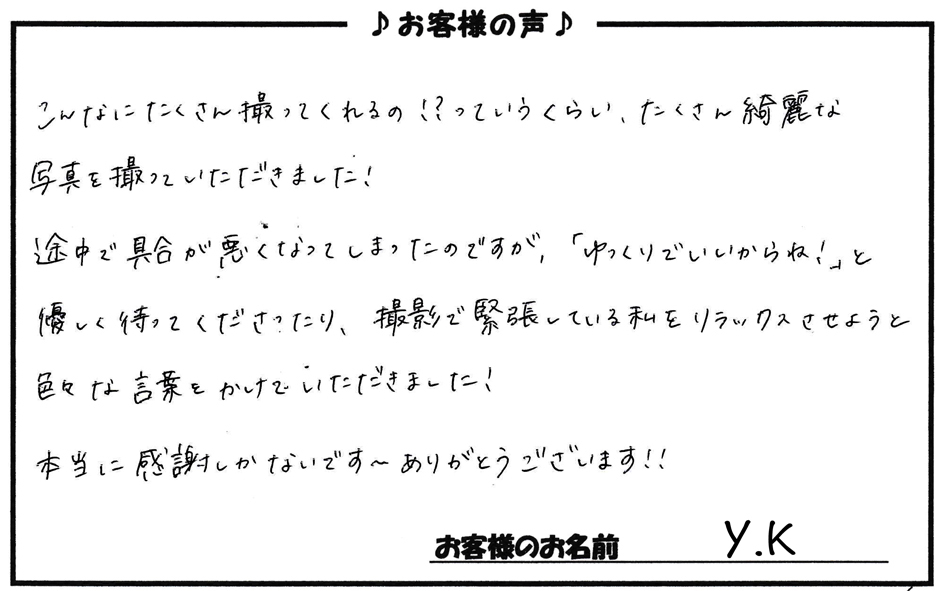 ♪お客様の声♪
こんなにたくさん撮ってくれるの!?っていうくらい、たくさん綺麗な
写真を撮っていただきました!
途中で具合が悪くなってしまったのですが、「ゆっくりでいいからね!」と
優しく待ってくださったり、撮影で緊張している私をリラックスさせようと
色々な言葉をかけていただきました!
本当に感謝しかないです〜ありがとうございます!!
お客様のお名前 Y.K